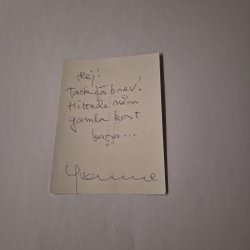 Hej!
Tack för brev!
Hittade mina
gamla kort
bara...
Yvonne